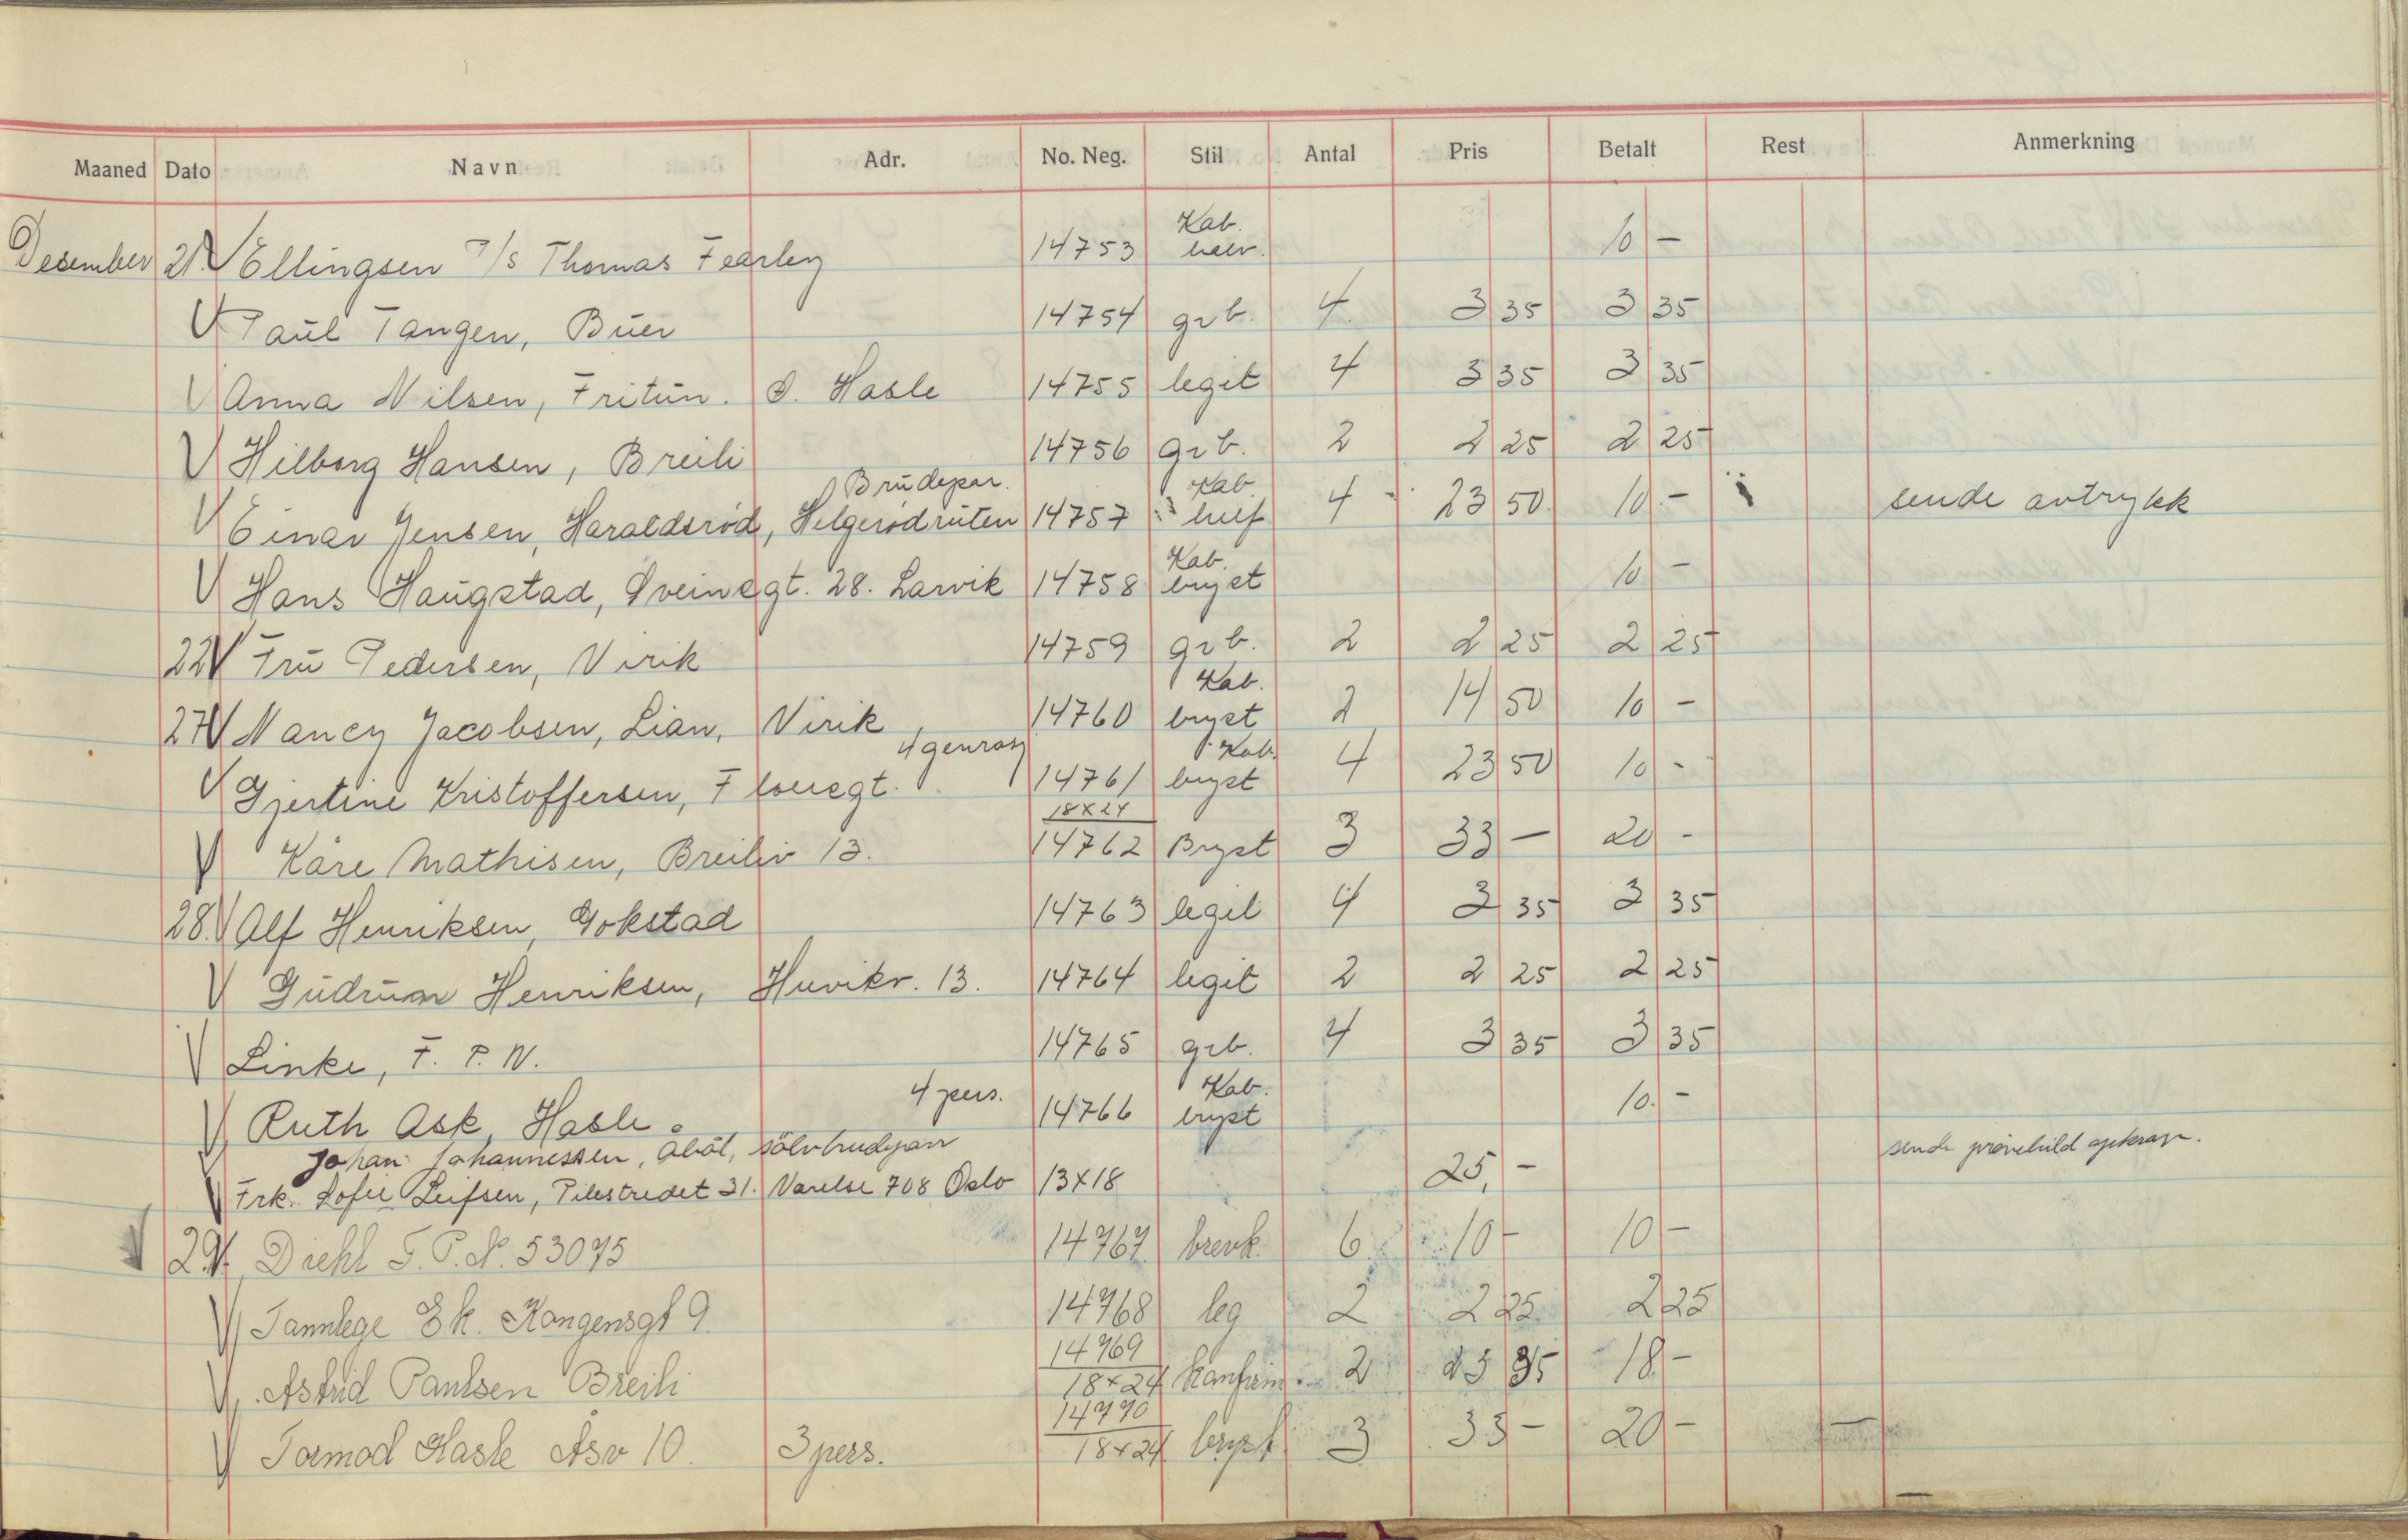 Maaned Dato Navn Adr. No. Neg. Stil Antal Pris Betalt Rest Anmerkning
Desember 21. V Ellingsen M/S Thomas Fearley 14753 Kab. helv. 10 -
V Paul Tangen, Buer 14754 grb. 4 3 35 3 35
V Anna Nilsen, Fritun. S. Hasle 14755 legit 4 3 35 3 35
V Hilborg Hansen, Breili 14756 grb. 2 2 25 2 25
Brudepar.
V Einar Jensen, Haraldsrød, Helgerødruten 14757 Kab. helf 4 23 50 10 - sende avtrykk
V Hans Haugstad, Sveinsgt. 28. Larvik 14758 Kab. bryst 10 -
22 V Fru Pedersen, Virik 14759 grb. 2 2 25 2 25
27 V Nancy Jacobsen, Lian, Virik 14760 Kab. bryst 2 14 50 10 -
V Gjertine Kristoffersen, 14761 Kab. bryst 4 23 50 10 -
18x24
V Kåre Mathisen, Breiliv 13. 14762 Bryst 3 33 - 20 -
28. V Alf Henriksen, Gokstad 14763 legit 4 3 35 3 35
V Gudrun Henriksen, Huvikv. 13. 14764 legit 2 2 25 2 25
V Linke, F. P. N. 14765 grb. 4 3 35 3 35
V Ruth Ask, Hasle. 4 pers. 14766 Kab. bryst 10. -
V Johan Johannessen, sölvbrudepar sende prövebild
V Frk. Sofie Leifsen, Pilestredet 31. Værelse 708 Oslo 13x18 25, -
29. V Diehl F. P. N. 53075 14767 brevk. 6 10 - 10 -
V Tannlege Ek. Kongensgt 9. 14768 leg 2 2 25 2 25
V Astrid Paulsen Breili 14769 18x24 konfirm. 2 23 35 18 -
V Tormod Hasle Åsv 10. 3 pers. 14770 18x24 bryst 3 33 - 20 -